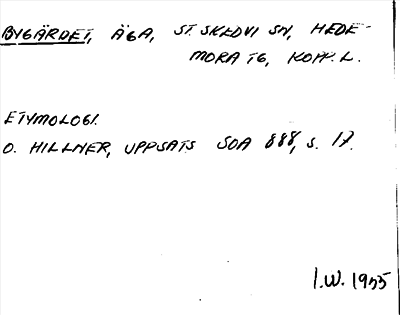 BYGÄRDET, ÄGA, ST. SKEDVI SN, HEDE-
MORA TG, KOPP. L.
ETYMOLOGI.
O. HILLNER, UPPSATS SOA 888, S. 17.
I.W. 1955